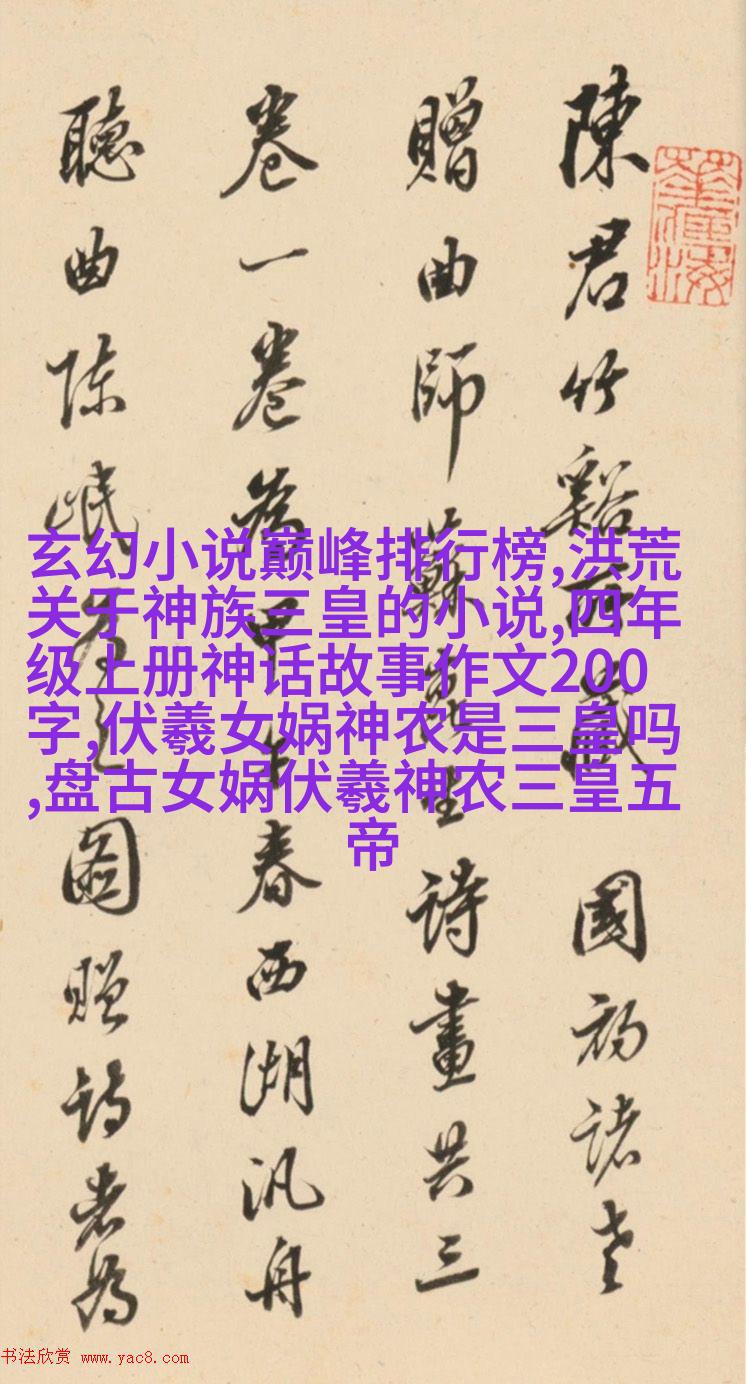 陳君竹谿所藏 國初諸老
贈曲師蘇崑生詩畫共三
卷一卷為甲午春西湖汎舟
聽曲陈岷為之圖贈詩者為
玄幻小说巅峰排行榜,洪荒
关于神族三皇的小说,四年
级上册神话故事作文200
字,伏羲女娲神农是三皇吗
,盘古女娲伏羲神农三皇五
帝
书法欣赏 www.yac8.com